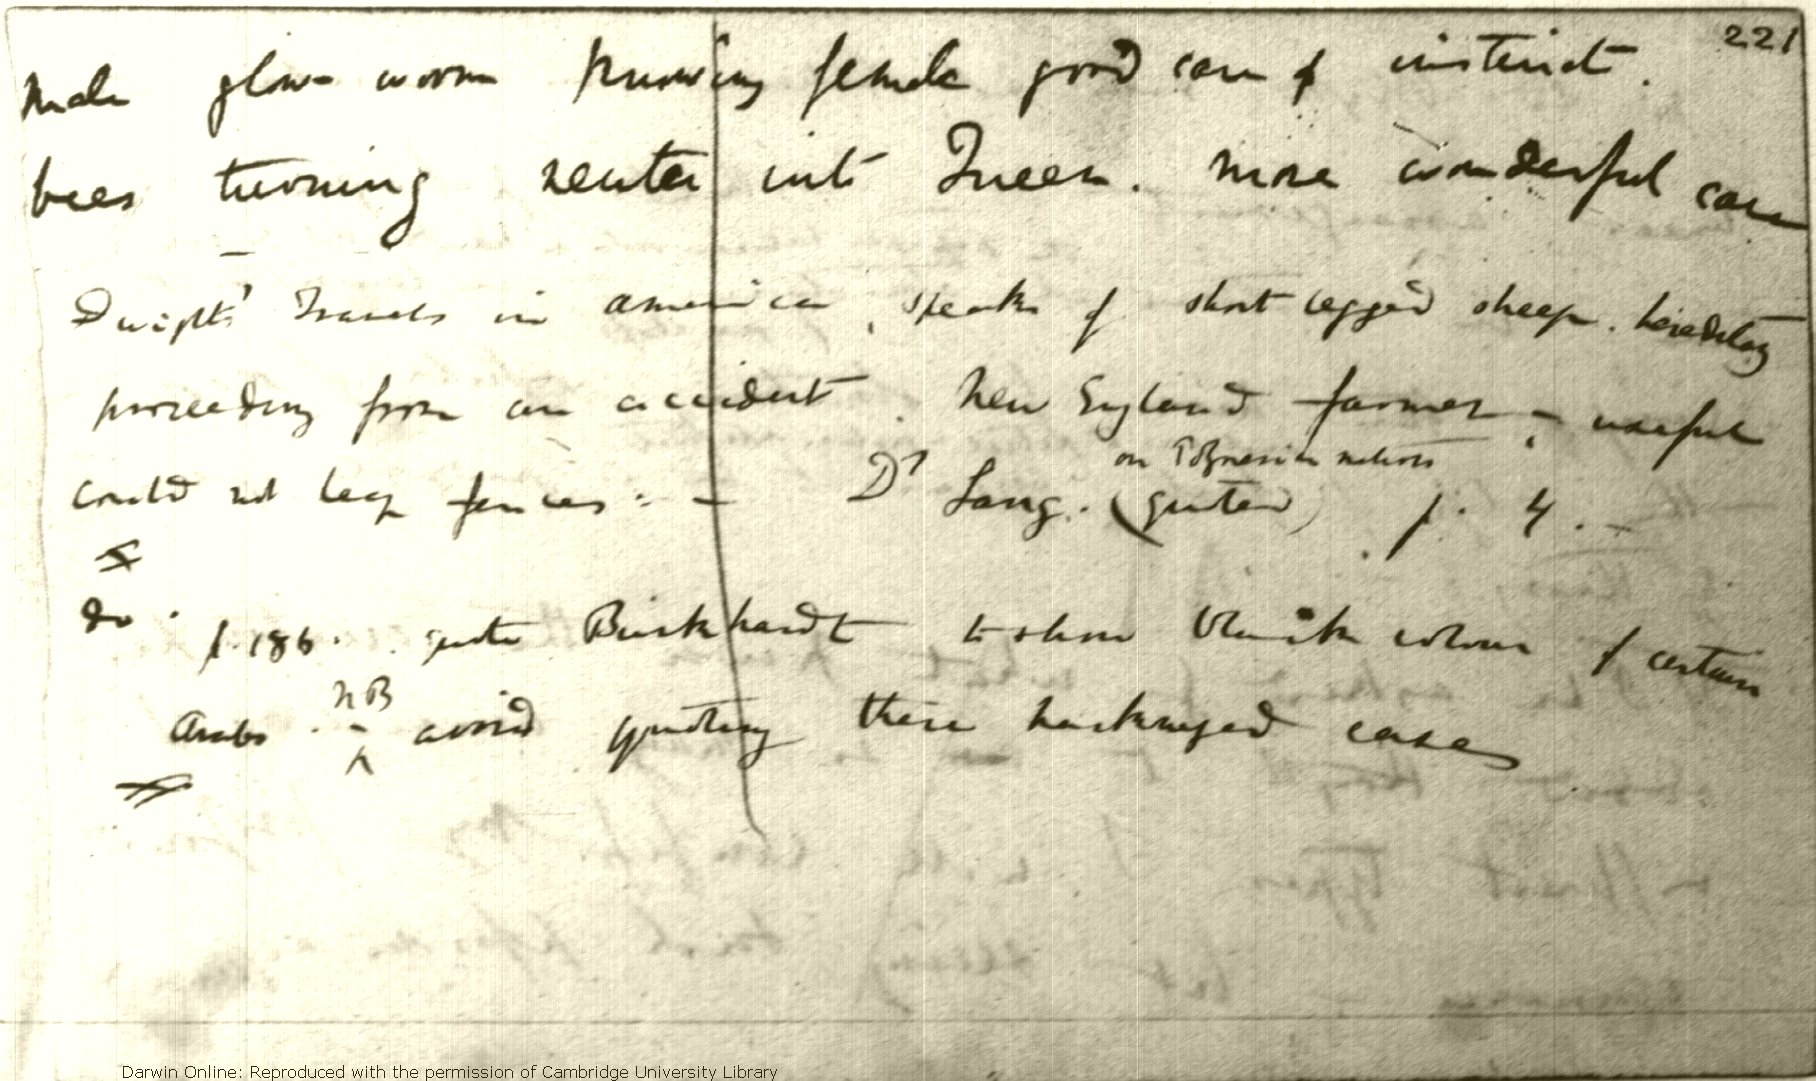 221
Male glow worm knowing female good case of instinct.
bees turning neuter into Queen. more wonderful case
—
Dwight's Travels in America, speaks of short legged sheep. hereditary
proceeding from an accident. New England farmer — useful
could not leap fences. — Dr Lang. (quoted) p. 4. —
on Polynesian nations
do. p. 186. quote Burkhardt to show blackish colour of certain
Arabs. — NB avoid quoting these hackneyed cases
Darwin Online: Reproduced with the permission of Cambridge University Library